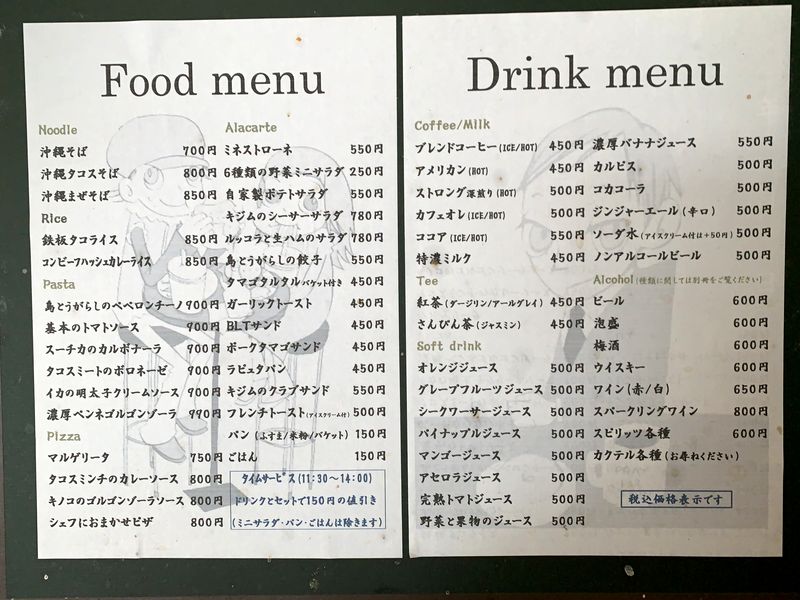 Food menu
Noodle
沖縄そば 700円
沖縄タコスそば 800円
沖縄まぜそば 850円
Rice
鉄板タコライス 850円
コンビーフハッシュカレーライス 850円
Pasta
島とうがらしのペペロンチーノ 900円
基本のトマトソース 900円
スーチカのカルボナーラ 900円
タコスミートのボロネーゼ 900円
イカの明太子クリームソース 900円
濃厚ペンネゴルゴンゾーラ 990円
Pizza
マルゲリータ 750円
タコスミンチのカレーソース 800円
キノコのゴルゴンゾーラソース 800円
シェフにおまかせピザ 800円
Alacarte
ミネストローネ 550円
6種類の野菜ミニサラダ 250円
自家製ポテトサラダ 550円
キジムのシーサーサラダ 780円
ルッコラと生ハムのサラダ 780円
島とうがらしの餃子 550円
タマゴタルタルバケット付き 450円
ガーリックトースト 450円
BLTサンド 450円
ポークタマゴサンド 450円
ラピュタパン 450円
キジムのクラブサンド 550円
フレンチトースト(アイスクリーム付) 500円
パン(ふすま/米粉/バケット) 150円
ごはん 150円
タイムサービス(11:30～14:00)
ドリンクとセットで150円の値引き
(ミニサラダ・パン・ごはんは除きます)
Drink menu
Coffee/Milk
ブレンドコーヒー(ICE/HOT) 450円
アメリカン(HOT) 450円
ストロング深煎り(HOT) 500円
カフェオレ(ICE/HOT) 500円
ココア(ICE/HOT) 550円
特濃ミルク 450円
Tee
紅茶(ダージリン/アールグレイ) 450円
さんぴん茶(ジャスミン) 450円
Soft drink
オレンジジュース 500円
グレープフルーツジュース 500円
シークワーサージュース 500円
パイナップルジュース 500円
マンゴージュース 500円
アセロラジュース 500円
完熟トマトジュース 500円
野菜と果物のジュース 500円
濃厚バナナジュース 550円
カルピス 500円
コカコーラ 500円
ジンジャーエール(辛口) 500円
ソーダ水(アイスクリーム付は+50円) 500円
ノンアルコールビール 500円
Alcohol(種類に関しては別冊をご覧ください)
ビール 600円
泡盛 600円
梅酒 600円
ウイスキー 600円
ワイン(赤/白) 650円
スパークリングワイン 800円
スピリッツ各種 600円
カクテル各種(お尋ねください)
税込価格表示です